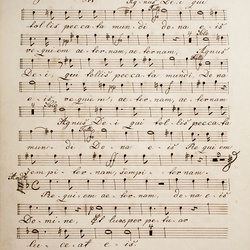 Agnus Dei qui
tollis peccata mundi dona eis
requiem aeternam, aeternam, Agnus
Dei, qui tollis peccata mundi, Dona
eis requiem aeternam, aeternam.
Agnus Dei qui tollis peccata
mundi Dona eis Requiem
sempiternam, sempiternam.
Requiem aeternam, dona eis
Domine, Et lux perpetuae
luceat eis